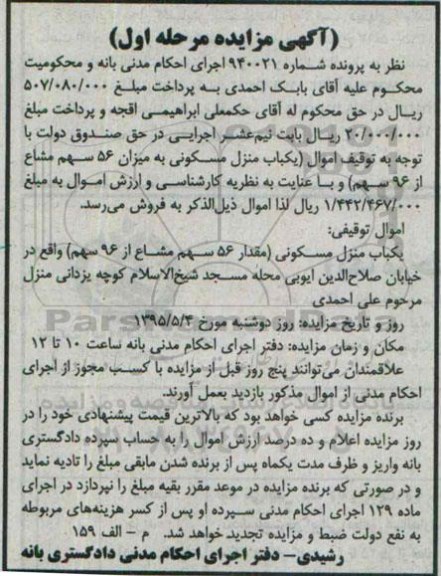 (آگهی مزایده مرحله اول)
نظر به پرونده شماره ۹۴۰۰۲۱ اجرای احکام مدنی بانه و محکومیت
محکوم علیه آقای بابک احمدی به پرداخت مبلغ ۵۰۷/۰۸۰/۰۰۰
ریال در حق محکوم له آقای حکمعلی ابراهیمی اقجه و پرداخت مبلغ
۲۰/۰۰۰/۰۰۰ ریال بابت نیم‌عشر اجرایی در حق صندوق دولت با
توجه به توقیف اموال (یکباب منزل مسکونی به میزان ۵۶ سهم مشاع
از ۹۶ سهم) و با عنایت به نظریه کارشناسی و ارزش اموال به مبلغ
۱/۴۴۲/۴۶۷/۰۰۰ ریال لذا اموال ذیل‌الذکر به فروش می‌رسد.
اموال توقیفی:
یکباب منزل مسکونی (مقدار ۵۶ سهم مشاع از ۹۶ سهم) واقع در
خیابان صلاح‌الدین ایوبی محله مسجد شیخ‌الاسلام کوچه یزدانی منزل
مرحوم علی احمدی
روز و تاریخ مزایده: روز دوشنبه مورخ ۱۳۹۵/۵/۴
مکان و زمان مزایده: دفتر اجرای احکام مدنی بانه ساعت ۱۰ تا ۱۲
علاقمندان می‌توانند پنج روز قبل از مزایده با کسب مجوز از اجرای
احکام مدنی از اموال مذکور بازدید بعمل آورند.
برنده مزایده کسی خواهد بود که بالاترین قیمت پیشنهادی خود را در
روز مزایده اعلام و ده درصد ارزش اموال را به حساب سپرده دادگستری
بانه واریز و ظرف مدت یکماه پس از برنده شدن مابقی مبلغ را تادیه نماید
و در صورتی که برنده مزایده در موعد مقرر بقیه مبلغ را نپردازد در اجرای
ماده ۱۲۹ اجرای احکام مدنی سپرده او پس از کسر هزینه‌های مربوطه
به نفع دولت ضبط و مزایده تجدید خواهد شد. م - الف ۱۵۹
رشیدی- دفتر اجرای احکام مدنی دادگستری بانه